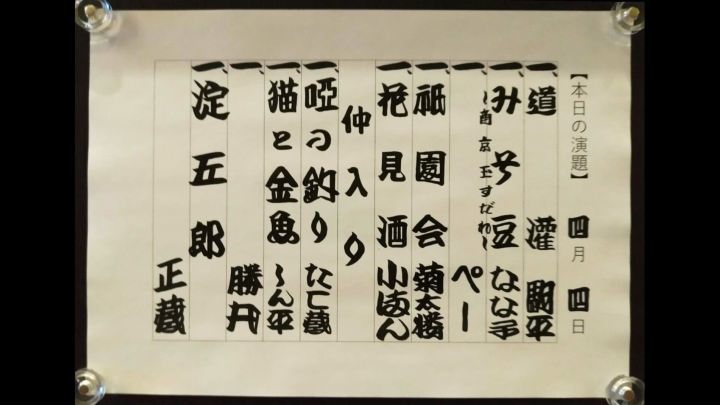 【本日の演題】 四月 四日
一、道灌 駒平
一、みそ豆 なな子
～南京玉すだれ～
一、 ぺー
一、祇園会 菊太楼
一、花見酒 小満ん
仲入り
一、唖の釣り たこ蔵
一、猫と金魚 しん平
一、 勝丸
一、淀五郎
正蔵